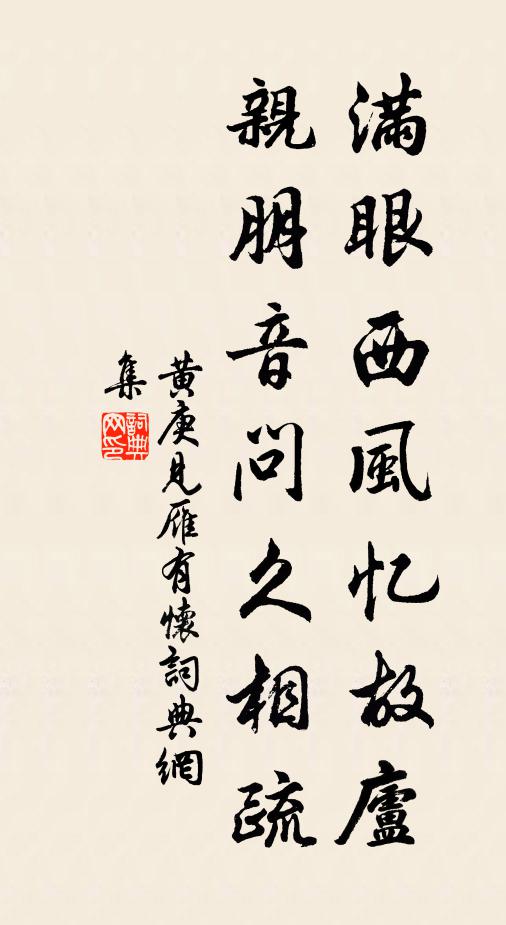 滿眼西風忆故廬
親朋音問久相疏
黃庚見雁有懷詞典網
集
詞典
网印